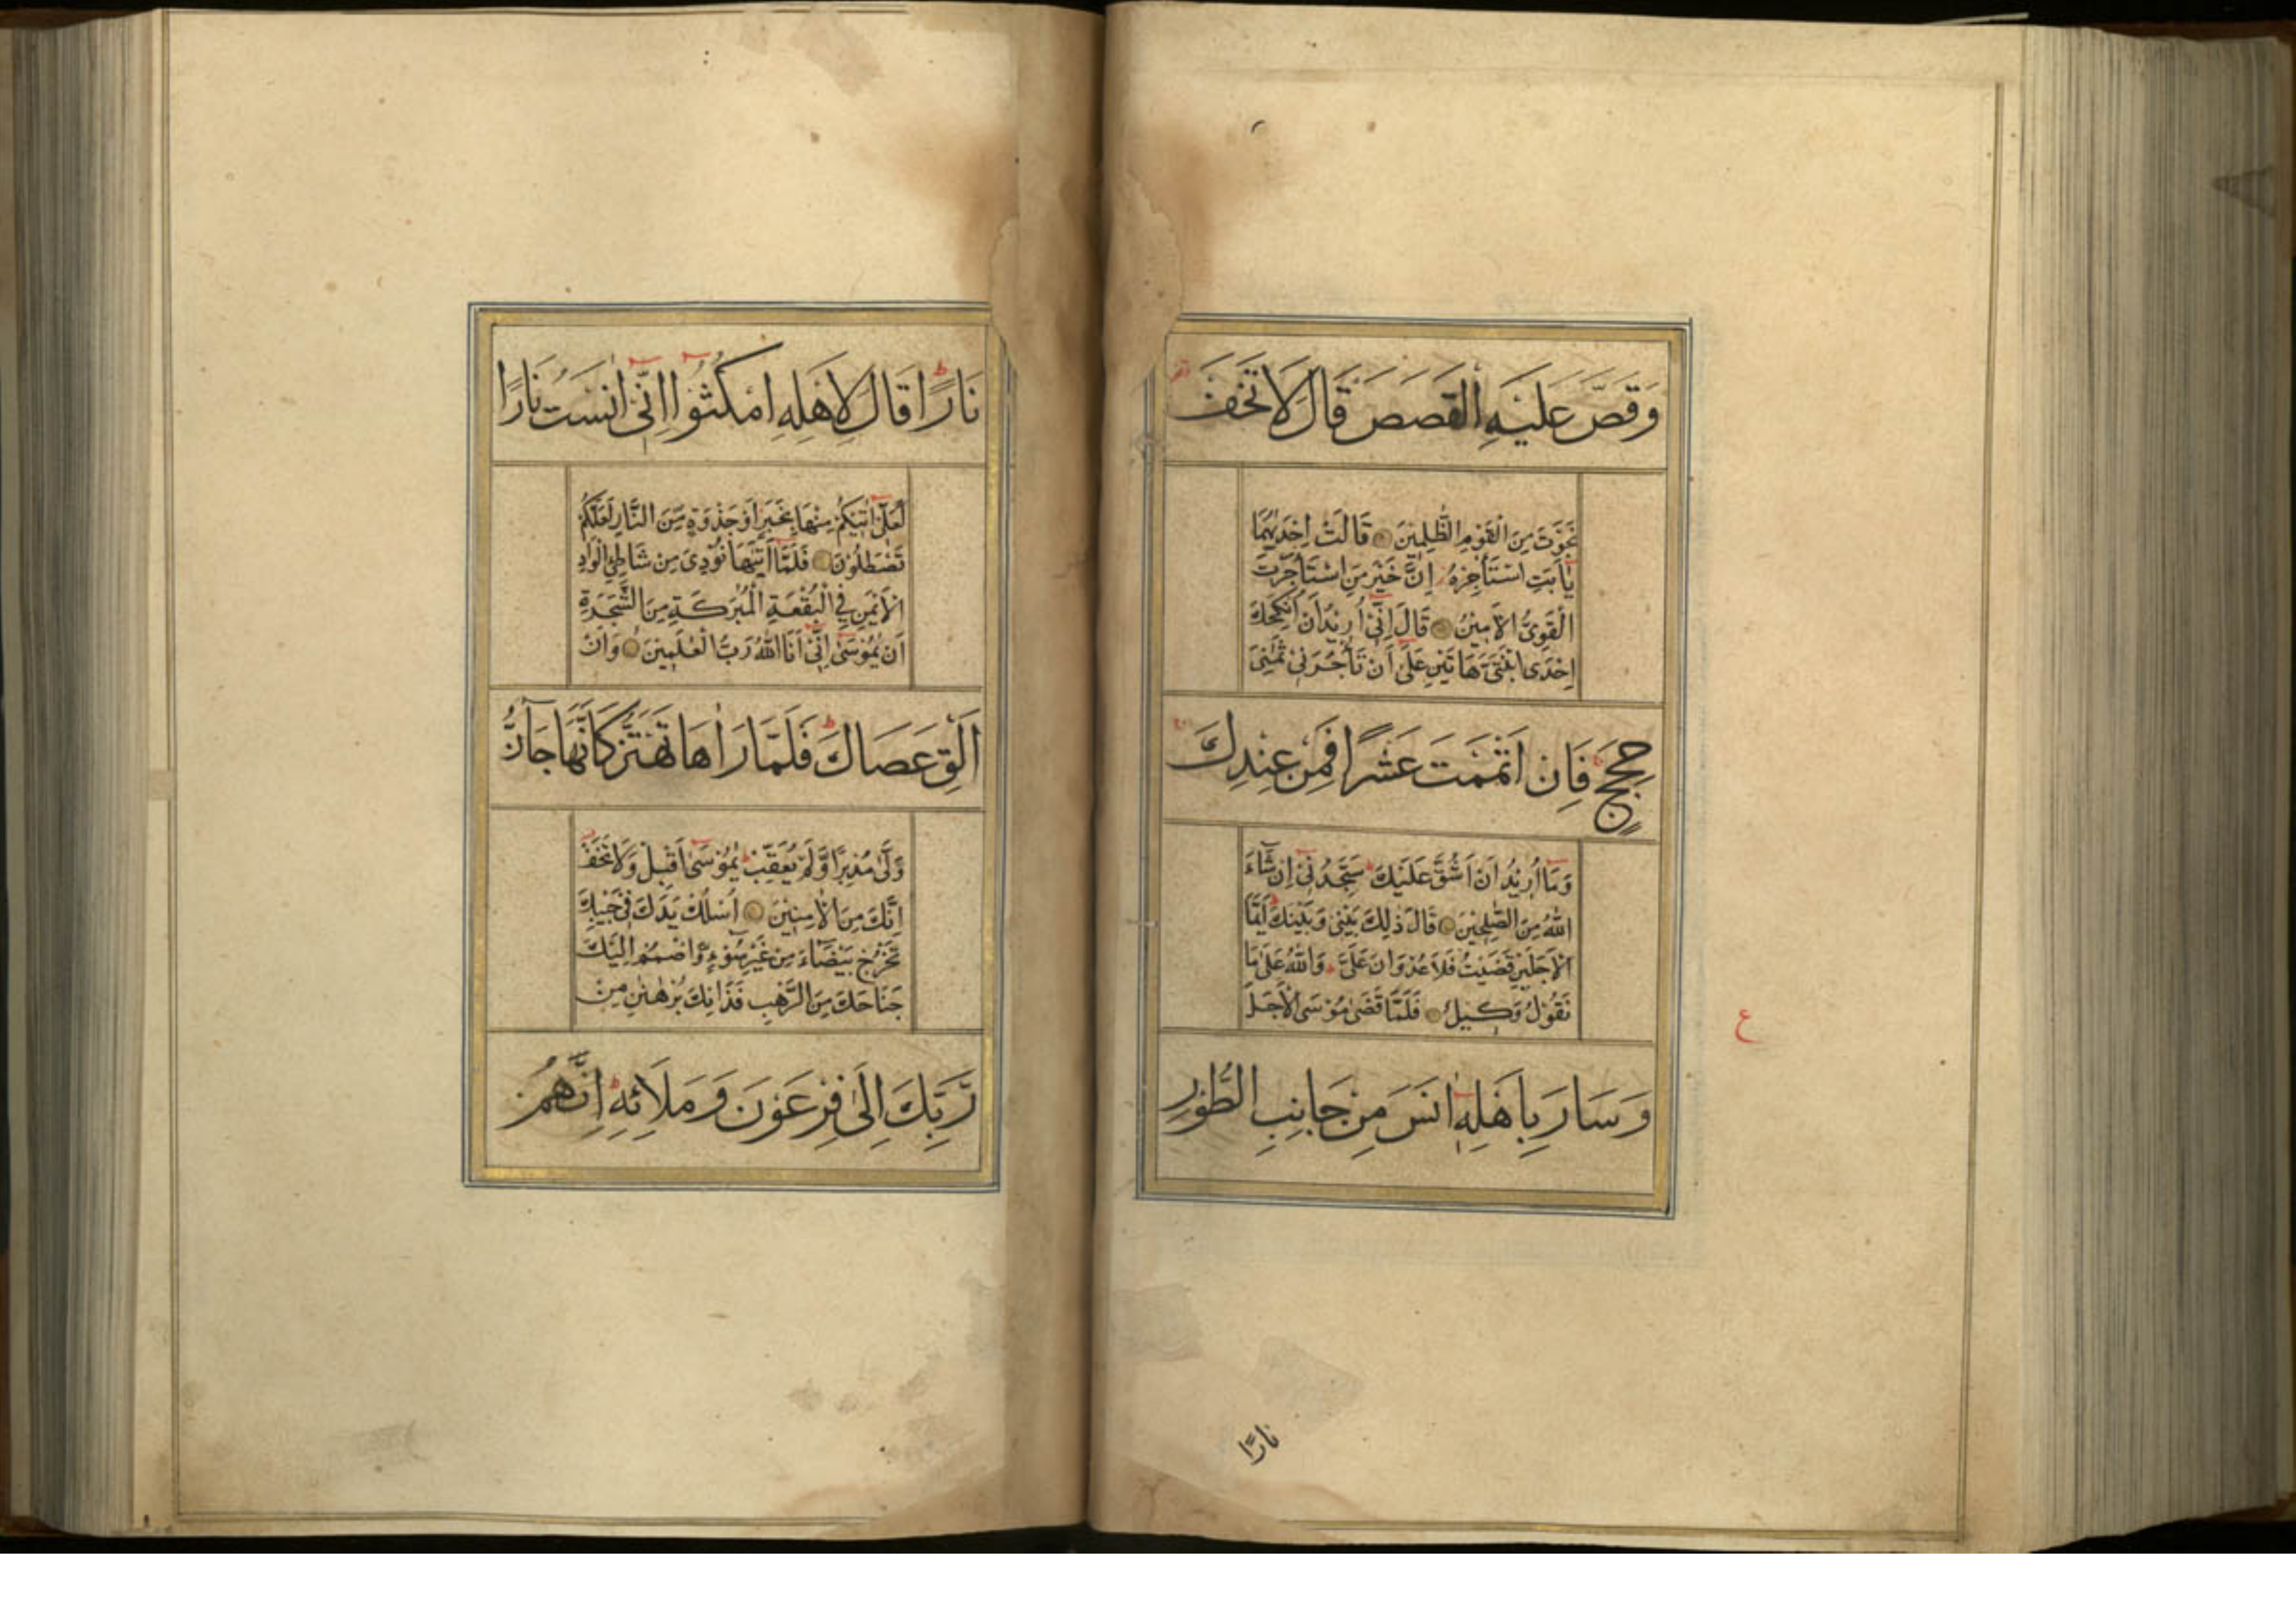 وَقَصَّ عَلَيْهِ الْقَصَصَ قَالَ لَا تَخَفْ
نَجَوْتَ مِنَ الْقَوْمِ الظّٰلِمِيْنَ قَالَتْ اِحْدٰىهُمَا
يٰٓاَبَتِ اسْتَأْجِرْهُ اِنَّ خَيْرَ مَنِ اسْتَأْجَرْتَ
الْقَوِيُّ الْاَمِيْنُ قَالَ اِنِّيْٓ اُرِيْدُ اَنْ اُنْكِحَكَ
اِحْدَى ابْنَتَيَّ هَاتَيْنِ عَلٰٓى اَنْ تَأْجُرَنِيْ ثَمٰنِيَ
حِجَجٍ فَاِنْ اَتْمَمْتَ عَشْرًا فَمِنْ عِنْدِكَ
وَمَآ اُرِيْدُ اَنْ اَشُقَّ عَلَيْكَ سَتَجِدُنِيْٓ اِنْ شَآءَ
اللّٰهُ مِنَ الصّٰلِحِيْنَ قَالَ ذٰلِكَ بَيْنِيْ وَبَيْنَكَ اَيَّمَا
الْاَجَلَيْنِ قَضَيْتُ فَلَا عُدْوَانَ عَلَيَّ وَاللّٰهُ عَلٰى مَا
نَقُوْلُ وَكِيْلٌ فَلَمَّا قَضٰى مُوْسَى الْاَجَلَ
ع
وَسَارَ بِاَهْلِهٖٓ اٰنَسَ مِنْ جَانِبِ الطُّوْرِ
نارًا
نَارًا قَالَ لِاَهْلِهِ امْكُثُوْٓا اِنِّيْٓ اٰنَسْتُ نَارًا
لَعَلِّيْٓ اٰتِيْكُمْ مِنْهَا بِخَبَرٍ اَوْ جَذْوَةٍ مِّنَ النَّارِ لَعَلَّكُمْ
تَصْطَلُوْنَ فَلَمَّآ اَتٰىهَا نُوْدِيَ مِنْ شَاطِئِ الْوَادِ
الْاَيْمَنِ فِي الْبُقْعَةِ الْمُبٰرَكَةِ مِنَ الشَّجَرَةِ
اَنْ يّٰمُوْسٰٓى اِنِّيْٓ اَنَا اللّٰهُ رَبُّ الْعٰلَمِيْنَ وَاَنْ
اَلْقِ عَصَاكَ فَلَمَّا رَاٰهَا تَهْتَزُّ كَاَنَّهَا جَآنٌّ
وَلّٰى مُدْبِرًا وَّلَمْ يُعَقِّبْ يٰمُوْسٰٓى اَقْبِلْ وَلَا تَخَفْ
اِنَّكَ مِنَ الْاٰمِنِيْنَ اُسْلُكْ يَدَكَ فِيْ جَيْبِكَ
تَخْرُجْ بَيْضَآءَ مِنْ غَيْرِ سُوْٓءٍ وَّاضْمُمْ اِلَيْكَ
جَنَاحَكَ مِنَ الرَّهْبِ فَذَانِكَ بُرْهَانٰنِ مِنْ
رَّبِّكَ اِلٰى فِرْعَوْنَ وَمَلَا۟ئِهٖ اِنَّهُمْ